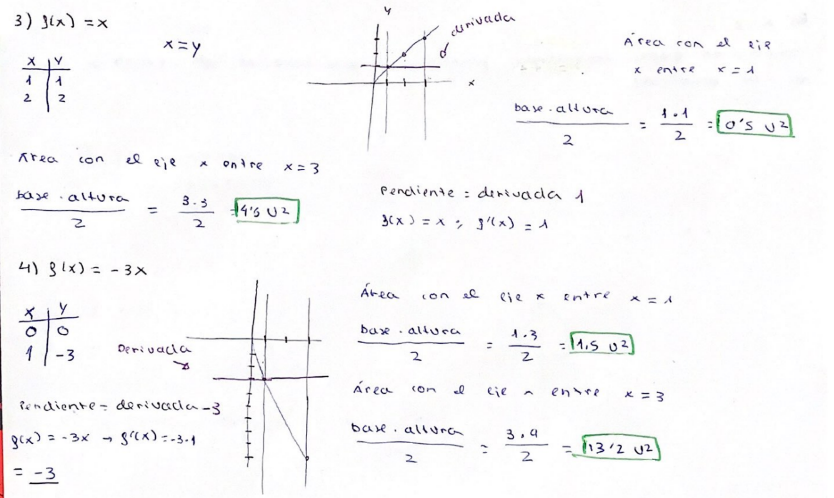 3) f(x) = x
x = y
x | y
1 | 1
2 | 2
y
derivada
x
Área con el eje
x entre x = 1
base · altura / 2 = 1 · 1 / 2 = 0'5 U²
Área con el eje x entre x = 3
base · altura / 2 = 3 · 3 / 2 = 4'5 U²
Pendiente = derivada 1
f(x) = x ; f'(x) = 1
4) f(x) = -3x
x | y
0 | 0
1 | -3
Derivada
Pendiente = derivada -3
f(x) = -3x → f'(x) = -3·1
= -3
Área con el eje x entre x = 1
base · altura / 2 = 1 · 3 / 2 = 1.5 U²
Área con el eje x entre x = 3
base · altura / 2 = 3 · 9 / 2 = 13'2 U²